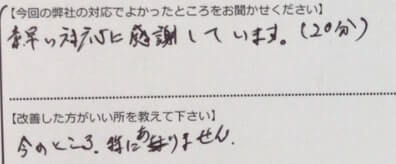 【今回の弊社の対応でよかったところをお聞かせください】
素早い対応に感謝しています。(20分)
【改善した方がいい所を教えて下さい】
今のところ、特にありません。